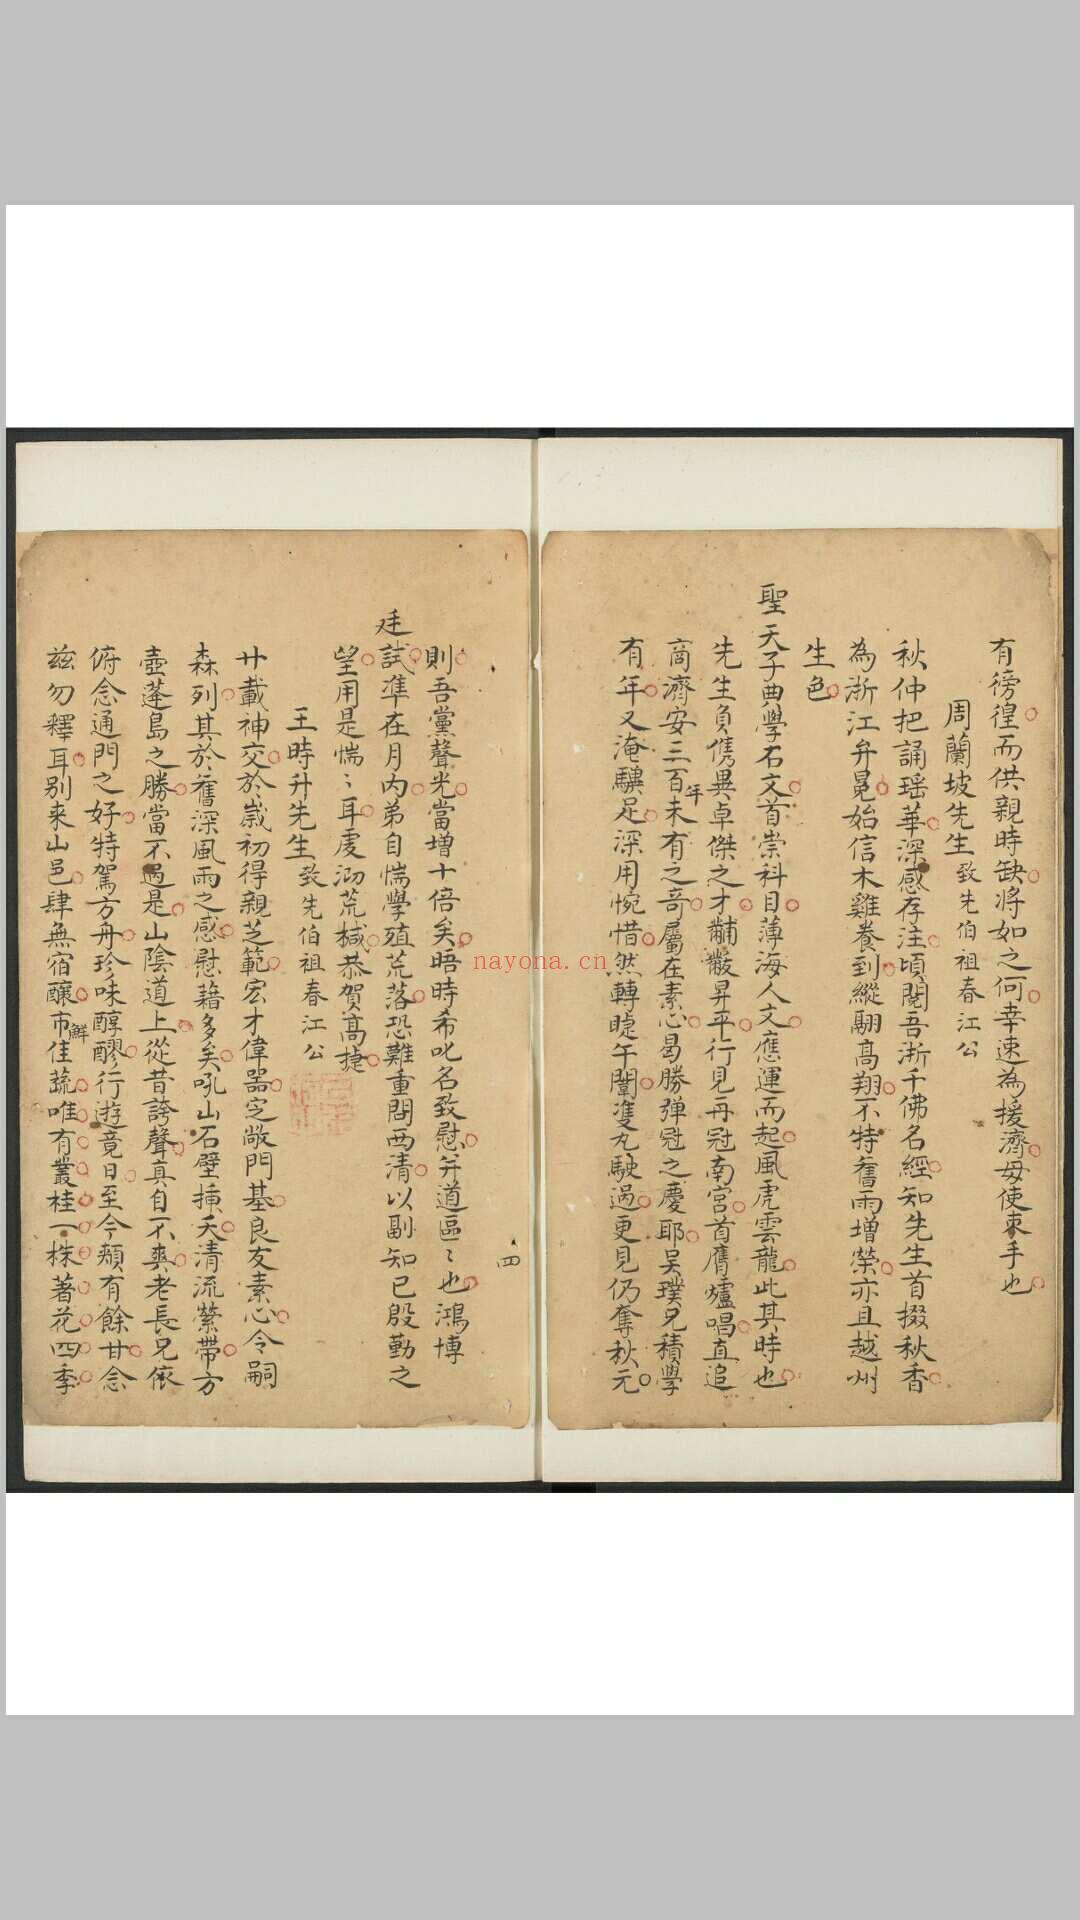 有徬徨而供親時缺將如之何幸速為援濟毋使束手也
周蘭坡先生致先伯祖春江公
秋仲把誦瑶華深感存注頃閱吾浙千佛名經知先生首掇秋香
為浙江弁冕始信木雞養到縱翮高翔不特舊雨增榮亦且越州
生色
聖天子典學右文首崇科目薄海人文應運而起風虎雲龍此其時也
先生負儁異卓傑之才黼黻昇平行見再冠南宮首膺爐唱直追
商濟安三百年未有之奇屬在素心曷勝彈冠之慶耶吴璞兄積學
有年又淹驥足深用惋惜然轉睫午闈隻丸駛過更見仍奪秋元
四
則吾黨聲光當增十倍矣晤時希叱名致慰并道區〻也鴻博
廷試準在月內弟自惴學殖荒落恐難重問西清以副知己殷勤之
望用是惴〻耳虔泐荒槭恭賀髙捷
王時升先生致先伯祖春江公
廿載神交於歲初得親芝範宏才偉器定敞門基良友素心令嗣
森列其於舊深風雨之感慰藉多矣吼山石壁揷天清流縈帶方
壺蓬島之勝當不過是山陰道上從昔誇聲真自不爽老長兄俵
俯念通門之好特駕方舟珍味醇醪行遊竟日至今頰有餘甘念
兹勿釋耳别来山邑肆無宿釀市鮮佳蔬唯有叢桂一株著花四季
nayona.cn